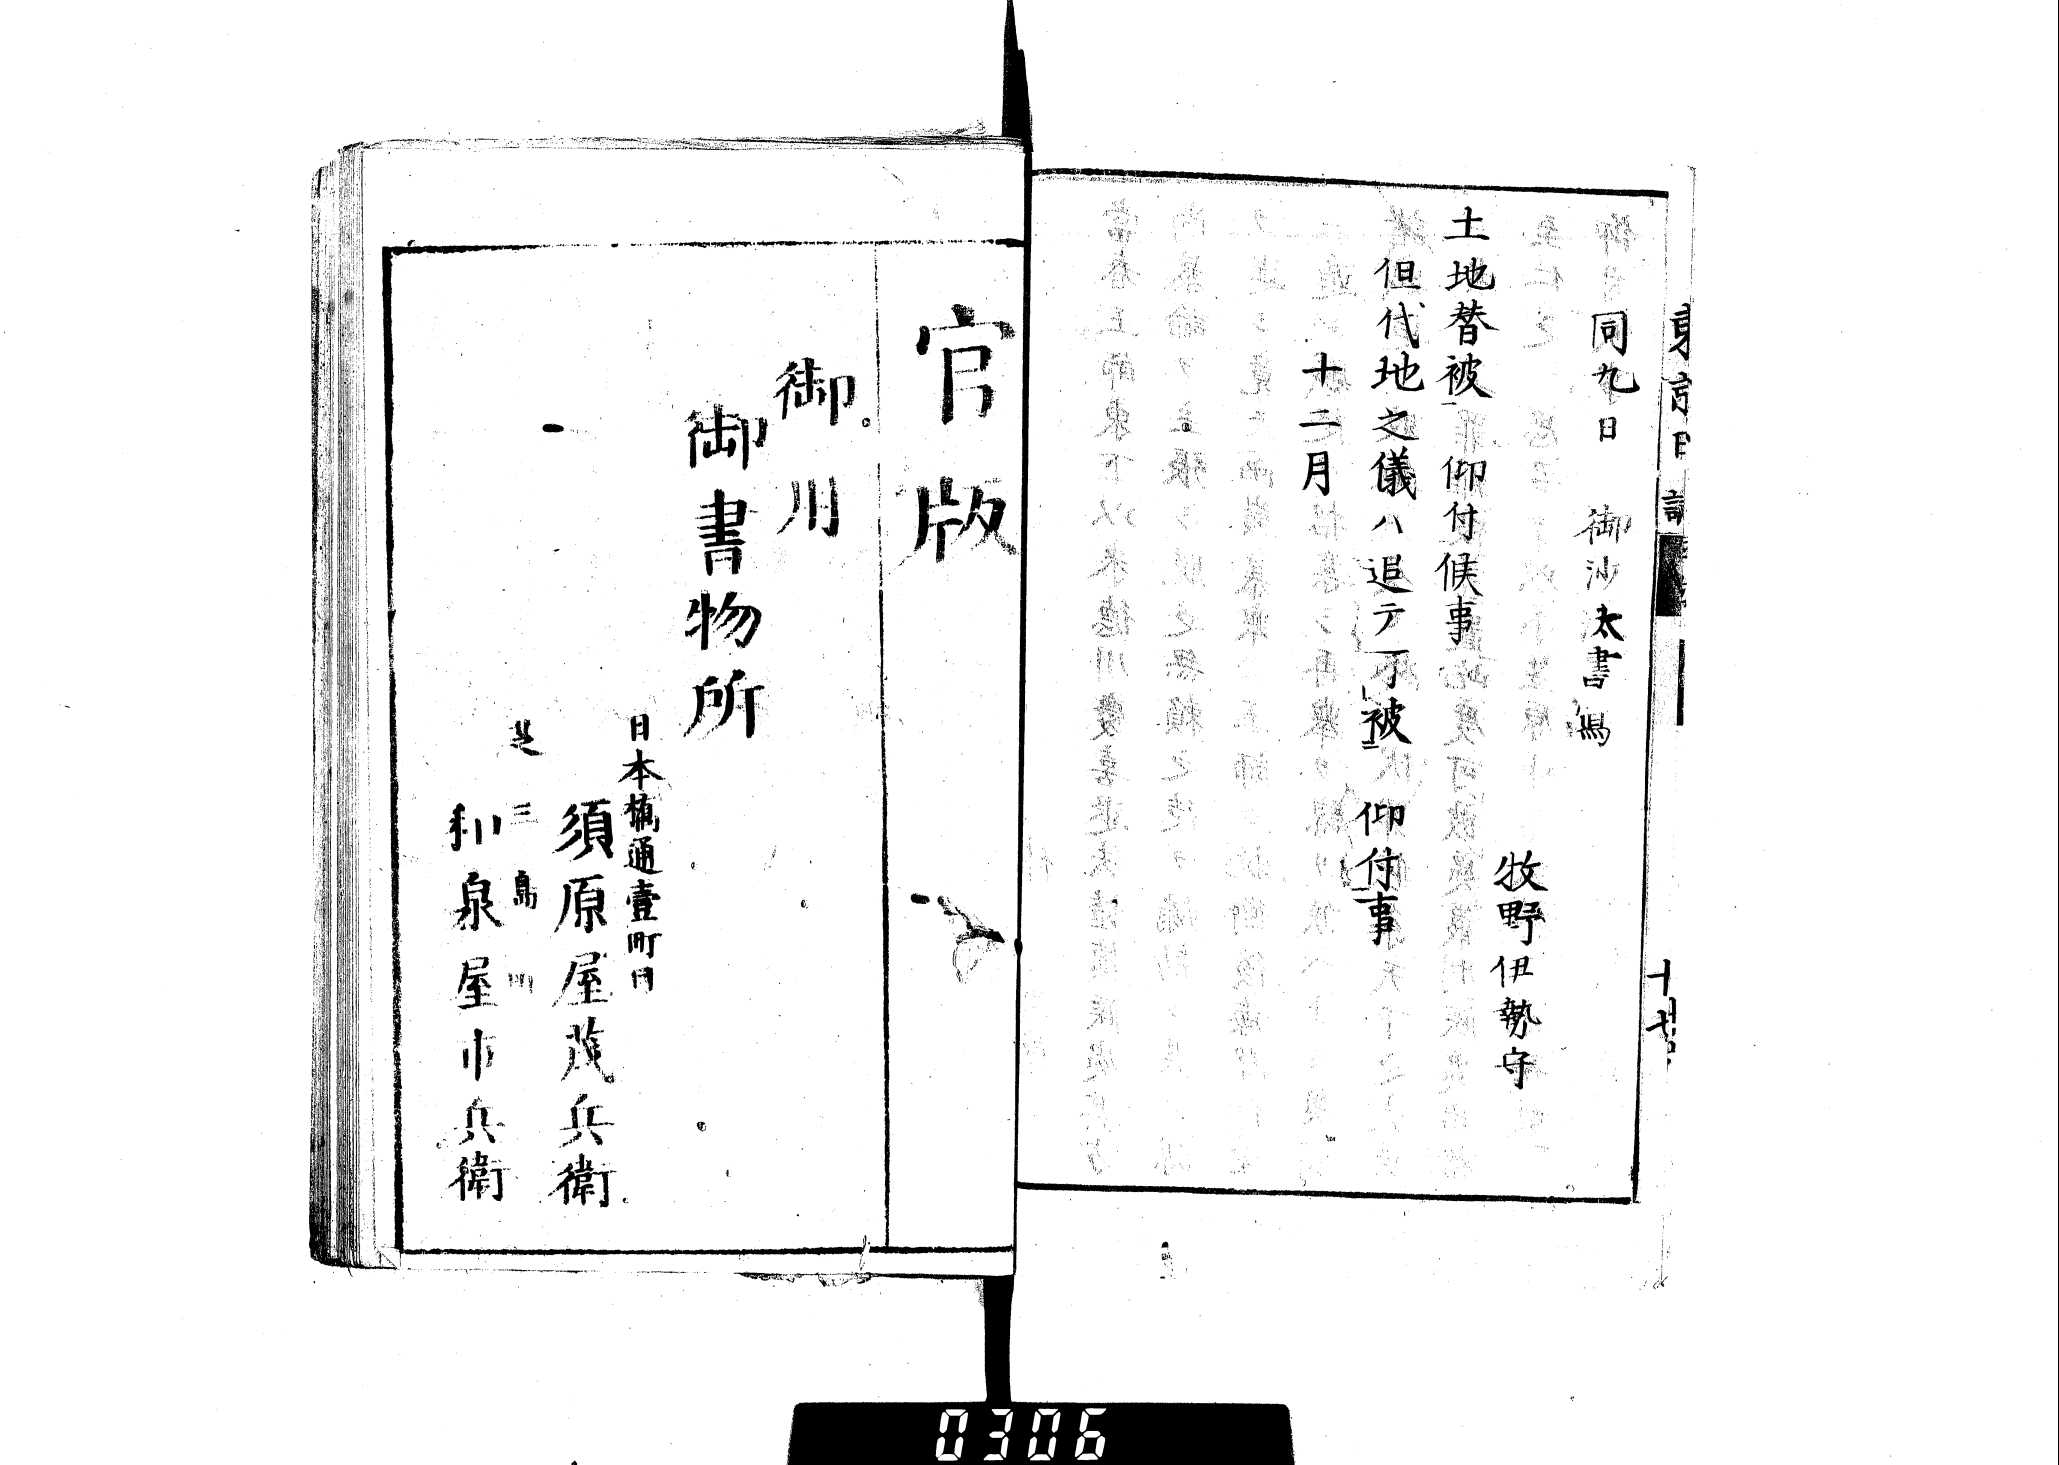 東京日誌
十七
同九日 御沙太書寫
牧野伊勢守
土地替被 仰付候事
但代地之儀ハ追テ可被 仰付事
十二月
官版
御用
御書物所
日本橋通壹町目
須原屋茂兵衛
芝三島町
和泉屋市兵衛
0306